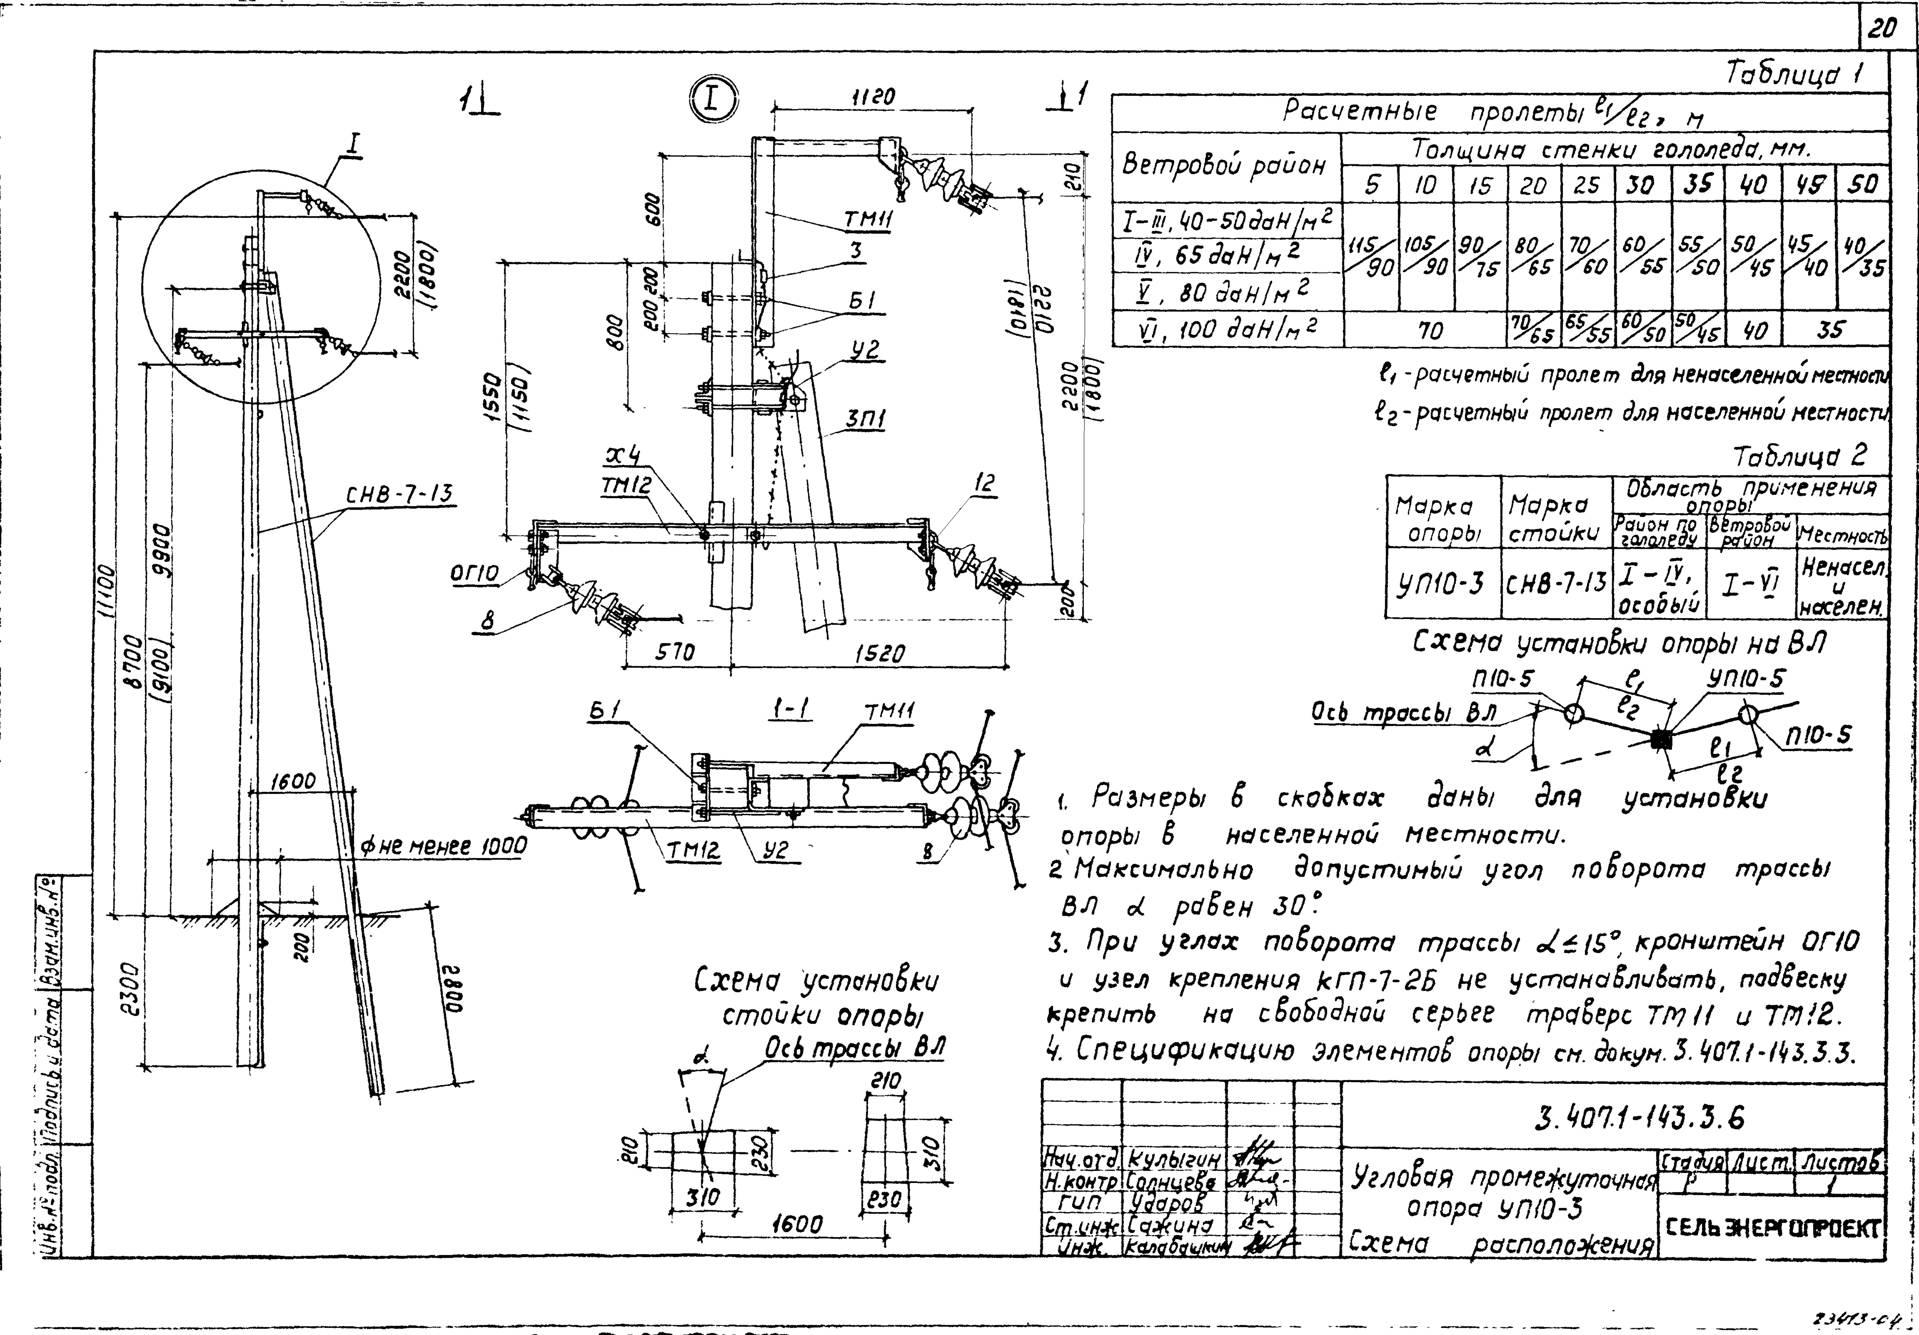 20
Таблица 1
Расчетные пролеты l1/l2, м
Ветровой район
Толщина стенки гололеда, мм.
5 10 15 20 25 30 35 40 45 50
I-III, 40-50 даН/м2
IV, 65 даН/м2
V, 80 даН/м2
115/90 105/90 90/75 80/65 70/60 60/55 55/50 50/45 45/40 40/35
VI, 100 даН/м2 70 70/65 65/55 60/50 50/45 40 35
l1 - расчетный пролет для ненаселенной местности
l2 - расчетный пролет для населенной местности
Таблица 2
Марка опоры
Марка стойки
Область применения опоры
Район по гололеду
Ветровой район
Местность
УП10-3
СНВ-7-13
I-IV, особый
I-VI
Ненасел. и населен.
Схема установки опоры на ВЛ
П10-5
l1
l2
УП10-5
Ось трассы ВЛ
α
П10-5
l1
l2
1. Размеры в скобках даны для установки
опоры в населенной местности.
2 Максимально допустимый угол поворота трассы
ВЛ α равен 30°.
3. При углах поворота трассы α≤15°, кронштейн ОГ10
и узел крепления КГП-7-2Б не устанавливать, подвеску
крепить на свободной серьге траверс ТМ11 и ТМ12.
4. Спецификацию элементов опоры см. докум. 3.407.1-143.3.3.
I
2200
(1800)
СНВ-7-13
11100
9900
8700
(9100)
1600
ф не менее 1000
200
2300
2800
1
I
1
1120
210
600
ТМ11
3
200 200
Б1
800
У2
1550
(1150)
2210
(1810)
2200
(1800)
ЗП1
Х4
ТМ12
12
ОГ10
8
200
570
1520
Б1
1-1
ТМ11
ТМ12
У2
8
Схема установки
стойки опоры
α
Ось трассы ВЛ
210
230
310
210
310
230
1600
3.407.1-143.3.6
Нач.отд. Кулыгин
Н.контр Солнцева
ГИП Ударов
Ст.инж Сажина
Инж. Калабашкин
Угловая промежуточная
опора УП10-3
Схема расположения
Стадия Лист. Листов
Р 1
СЕЛЬЭНЕРГОПРОЕКТ
Инв.№подл. Подпись и дата Взам.инв.№
23473-04